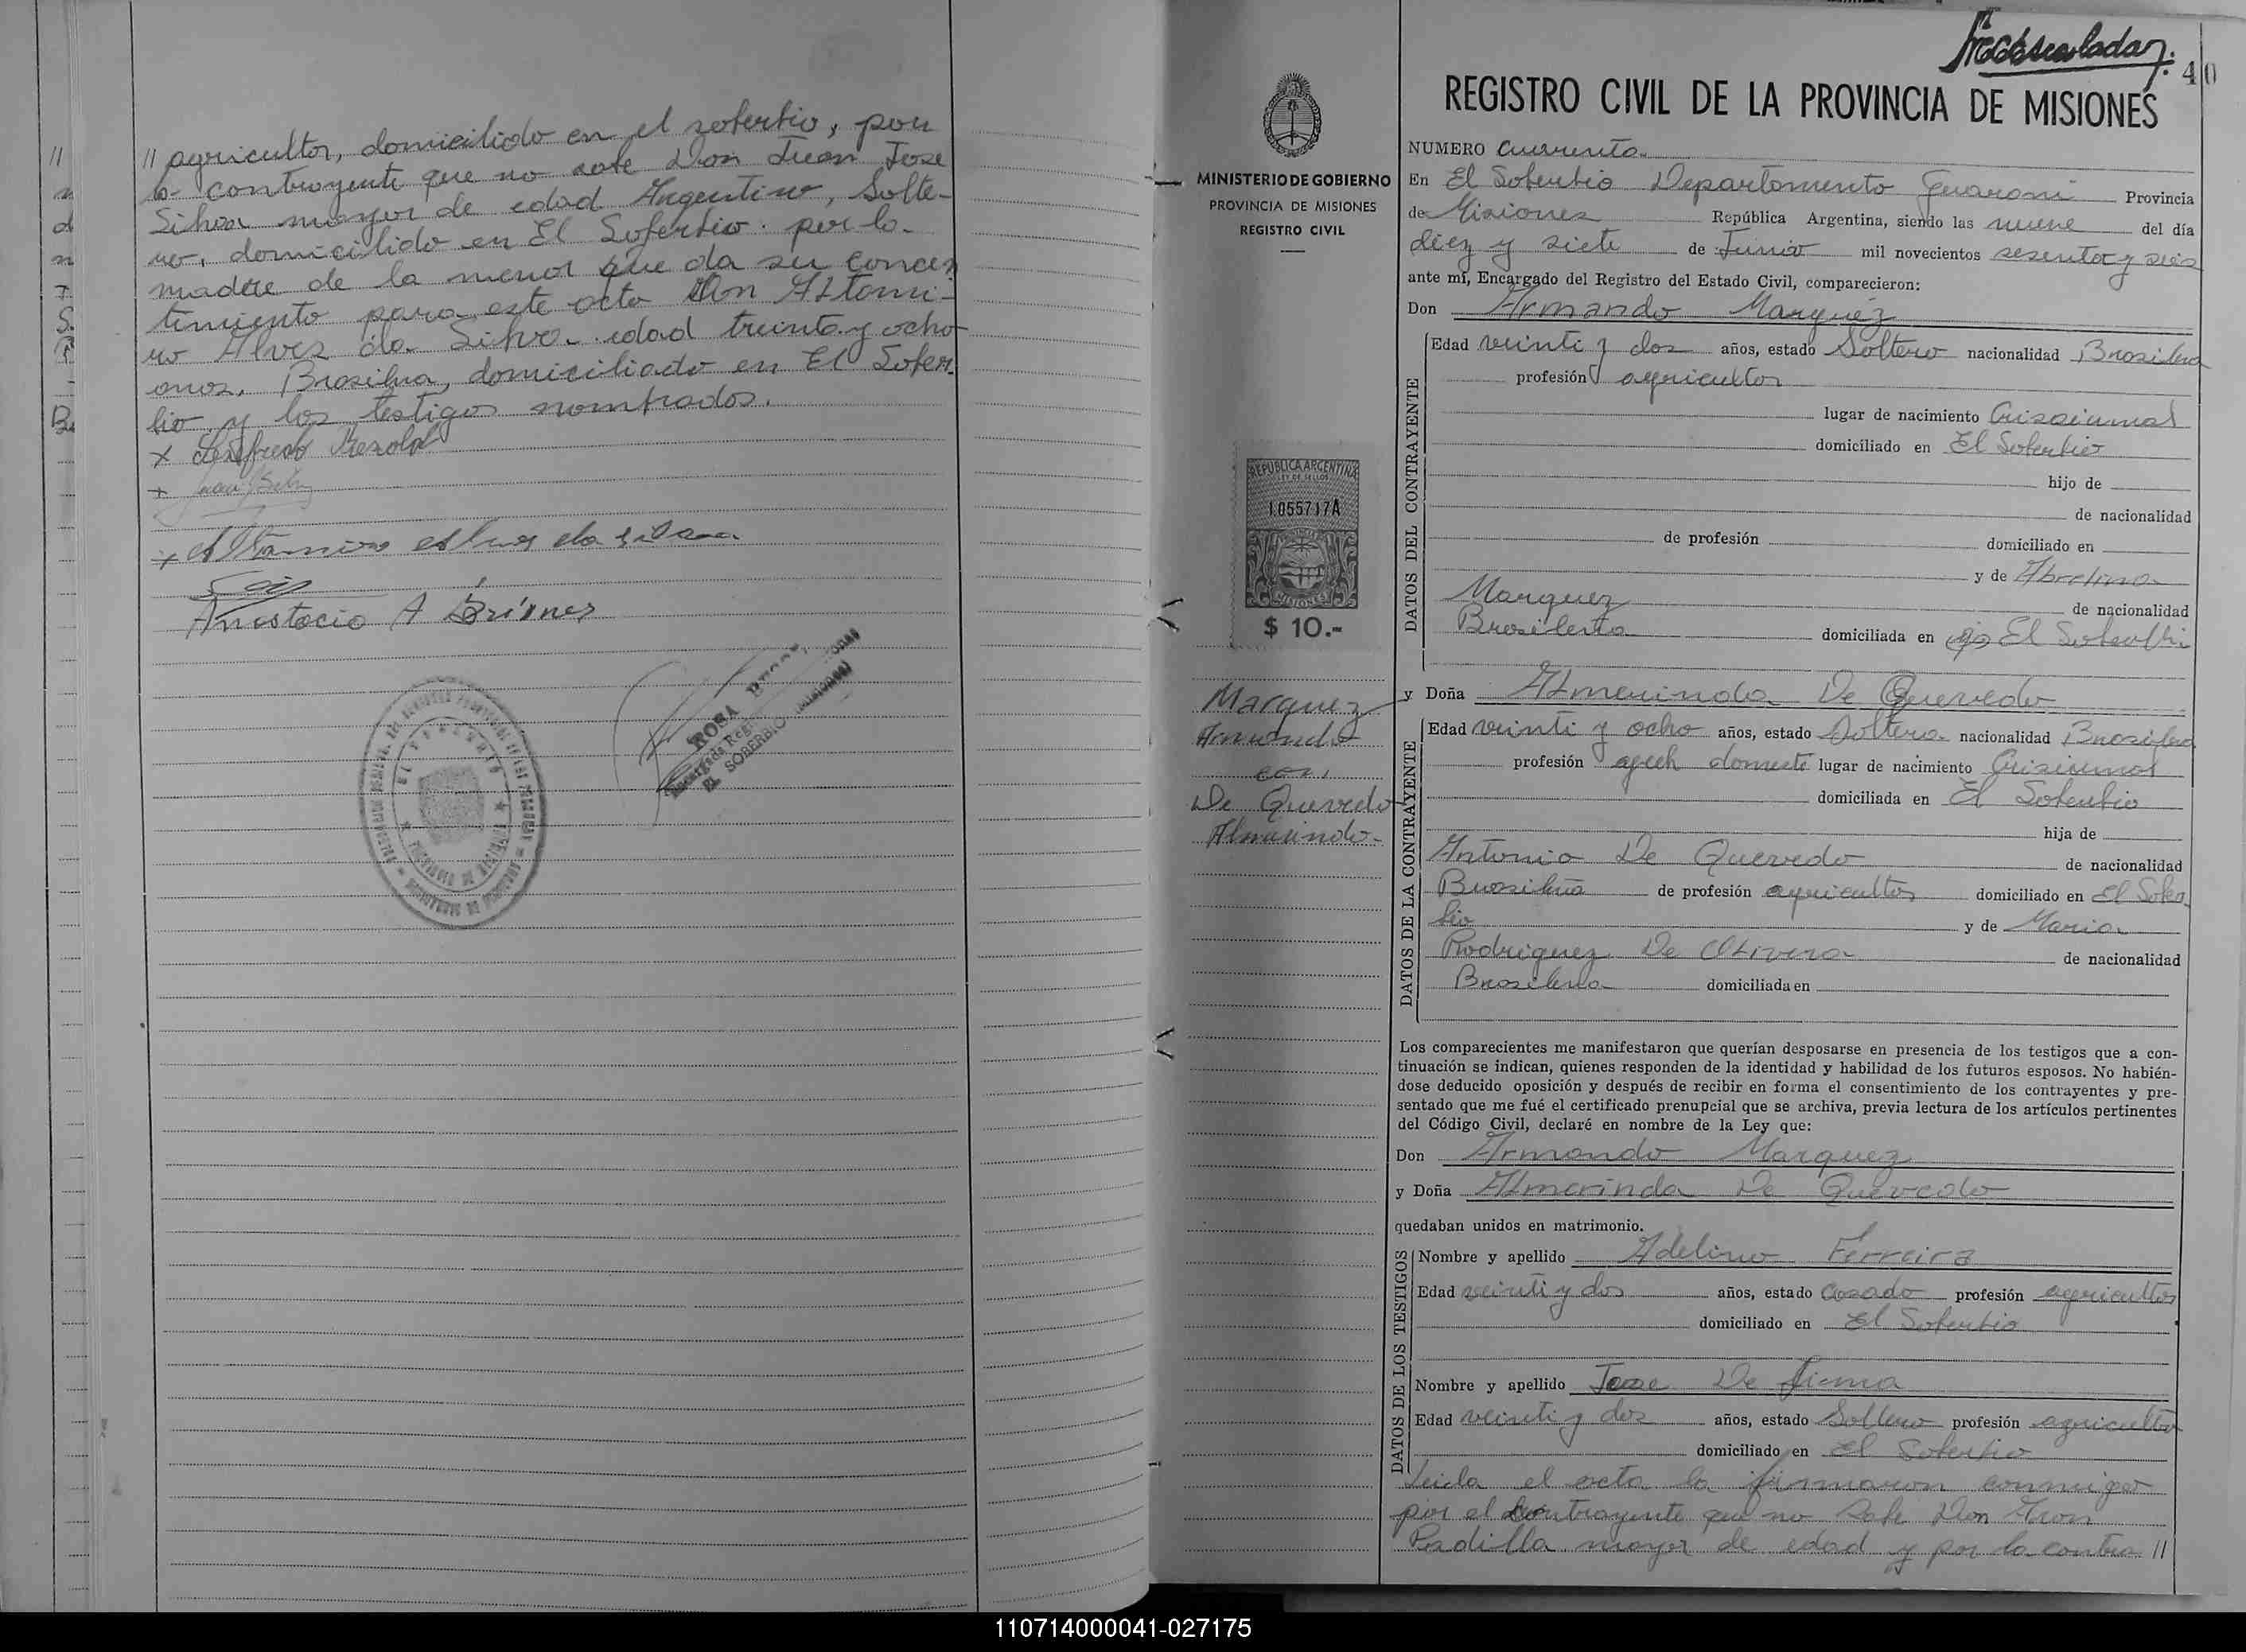 // agricultor, domicilido en el soberbio, por
la contrayente que no sabe Don Juan Jose
Silva mayor de edad Argentino, Solte-
ro, domicilido en El Soberbio. por la
madre de la menor que da su concen
timiento para este acto Don Altami-
ro Alves da Silva. edad treinta y ocho
anos, Brasilera, domiciliado en El Sober.
bio, y los testigos nombrados.
x
+
x Altamiro alves da silva
Anastacio A Briones
ROSA
Encargada Regis
EL SOBERBIO (MISIONES)
MINISTERIO DE GOBIERNO
PROVINCIA DE MISIONES
REGISTRO CIVIL
REPUBLICA ARGENTINA
LEY DE SELLOS
1055717A
MISIONES
$ 10.-
Marquez
Armando
con
De Quevedo
Almerinda
40
REGISTRO CIVIL DE LA PROVINCIA DE MISIONES
NUMERO Cuarenta
En El Soberbio Departamento Guarani Provincia
de Misiones República Argentina, siendo las nueve del día
diez y siete de Junio mil novecientos sesenta y seis
ante mí, Encargado del Registro del Estado Civil, comparecieron:
Don Armando Marquez
DATOS DEL CONTRAYENTE
Edad veinti y dos años, estado Soltero nacionalidad Brasilera
profesión agricultor
lugar de nacimiento Crisiumal
domiciliado en El Soberbio
hijo de
de nacionalidad
de profesión domiciliado en
y de Abrelina
Marquez de nacionalidad
Brasilera domiciliada en El Soberbi
y Doña Almerinda De Quevedo
DATOS DE LA CONTRAYENTE
Edad veinti y ocho años, estado Soltera nacionalidad Brasilera
profesión domesti lugar de nacimiento Crisiumal
domiciliada en El Soberbio
hija de
Antonio De Quevedo de nacionalidad
Brasilera de profesión agricultor domiciliado en El Sober
bio y de Maria
Rodriguez De Olivera de nacionalidad
Brasilera domiciliada en
Los comparecientes me manifestaron que querían desposarse en presencia de los testigos que a con-
tinuación se indican, quienes responden de la identidad y habilidad de los futuros esposos. No habién-
dose deducido oposición y después de recibir en forma el consentimiento de los contrayentes y pre-
sentado que me fué el certificado prenupcial que se archiva, previa lectura de los artículos pertinentes
del Código Civil, declaré en nombre de la Ley que:
Don Armando Marquez
y Doña Almerinda De Quevedo
quedaban unidos en matrimonio.
DATOS DE LOS TESTIGOS
Nombre y apellido Adelino Ferreira
Edad veinti y dos años, estado Casado profesión agricultor
domiciliado en El Soberbio
Nombre y apellido Jose De Lima
Edad veinti y dos años, estado Soltero profesión agricultor
domiciliado en El Soberbio
Leida el acta la firmaron conmigo
por el contrayente que no sabe Don Aron
Padilla mayor de edad y por la contra //
110714000041-027175